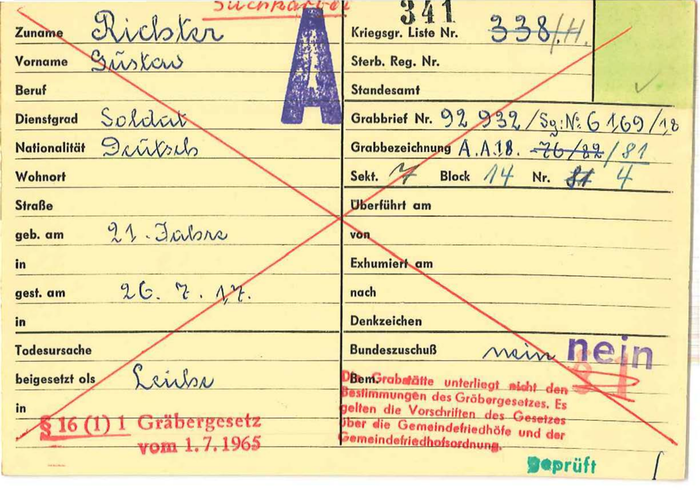 Suchkartei
341
Zuname Richter
Kriegsgr. Liste Nr. 338/.H.
Vorname Gustav
Sterb. Reg. Nr.
Beruf
Standesamt
A
Dienstgrad Soldat
Grabbrief Nr. 92 932/Sg: Nº 6169/18
Nationalität Deutsch
Grabbezeichnung A.A.18. 76/82/81
Wohnort
Sekt. 7 Block 14 Nr. 81 4
Straße
Überführt am
geb. am 21. Jahre
von
in
Exhumiert am
gest. am 26. 7. 17.
nach
in
Denkzeichen
Todesursache
Bundeszuschuß nein nein
beigesetzt als Leiche
Bem.
in
§ 16 (1) 1 Gräbergesetz
vom 1.7.1965
Die Grabstätte unterliegt nicht den
Bestimmungen des Gräbergesetzes. Es
gelten die Vorschriften des Gesetzes
über die Gemeindefriedhöfe und der
Gemeindefriedhofsordnung.
geprüft